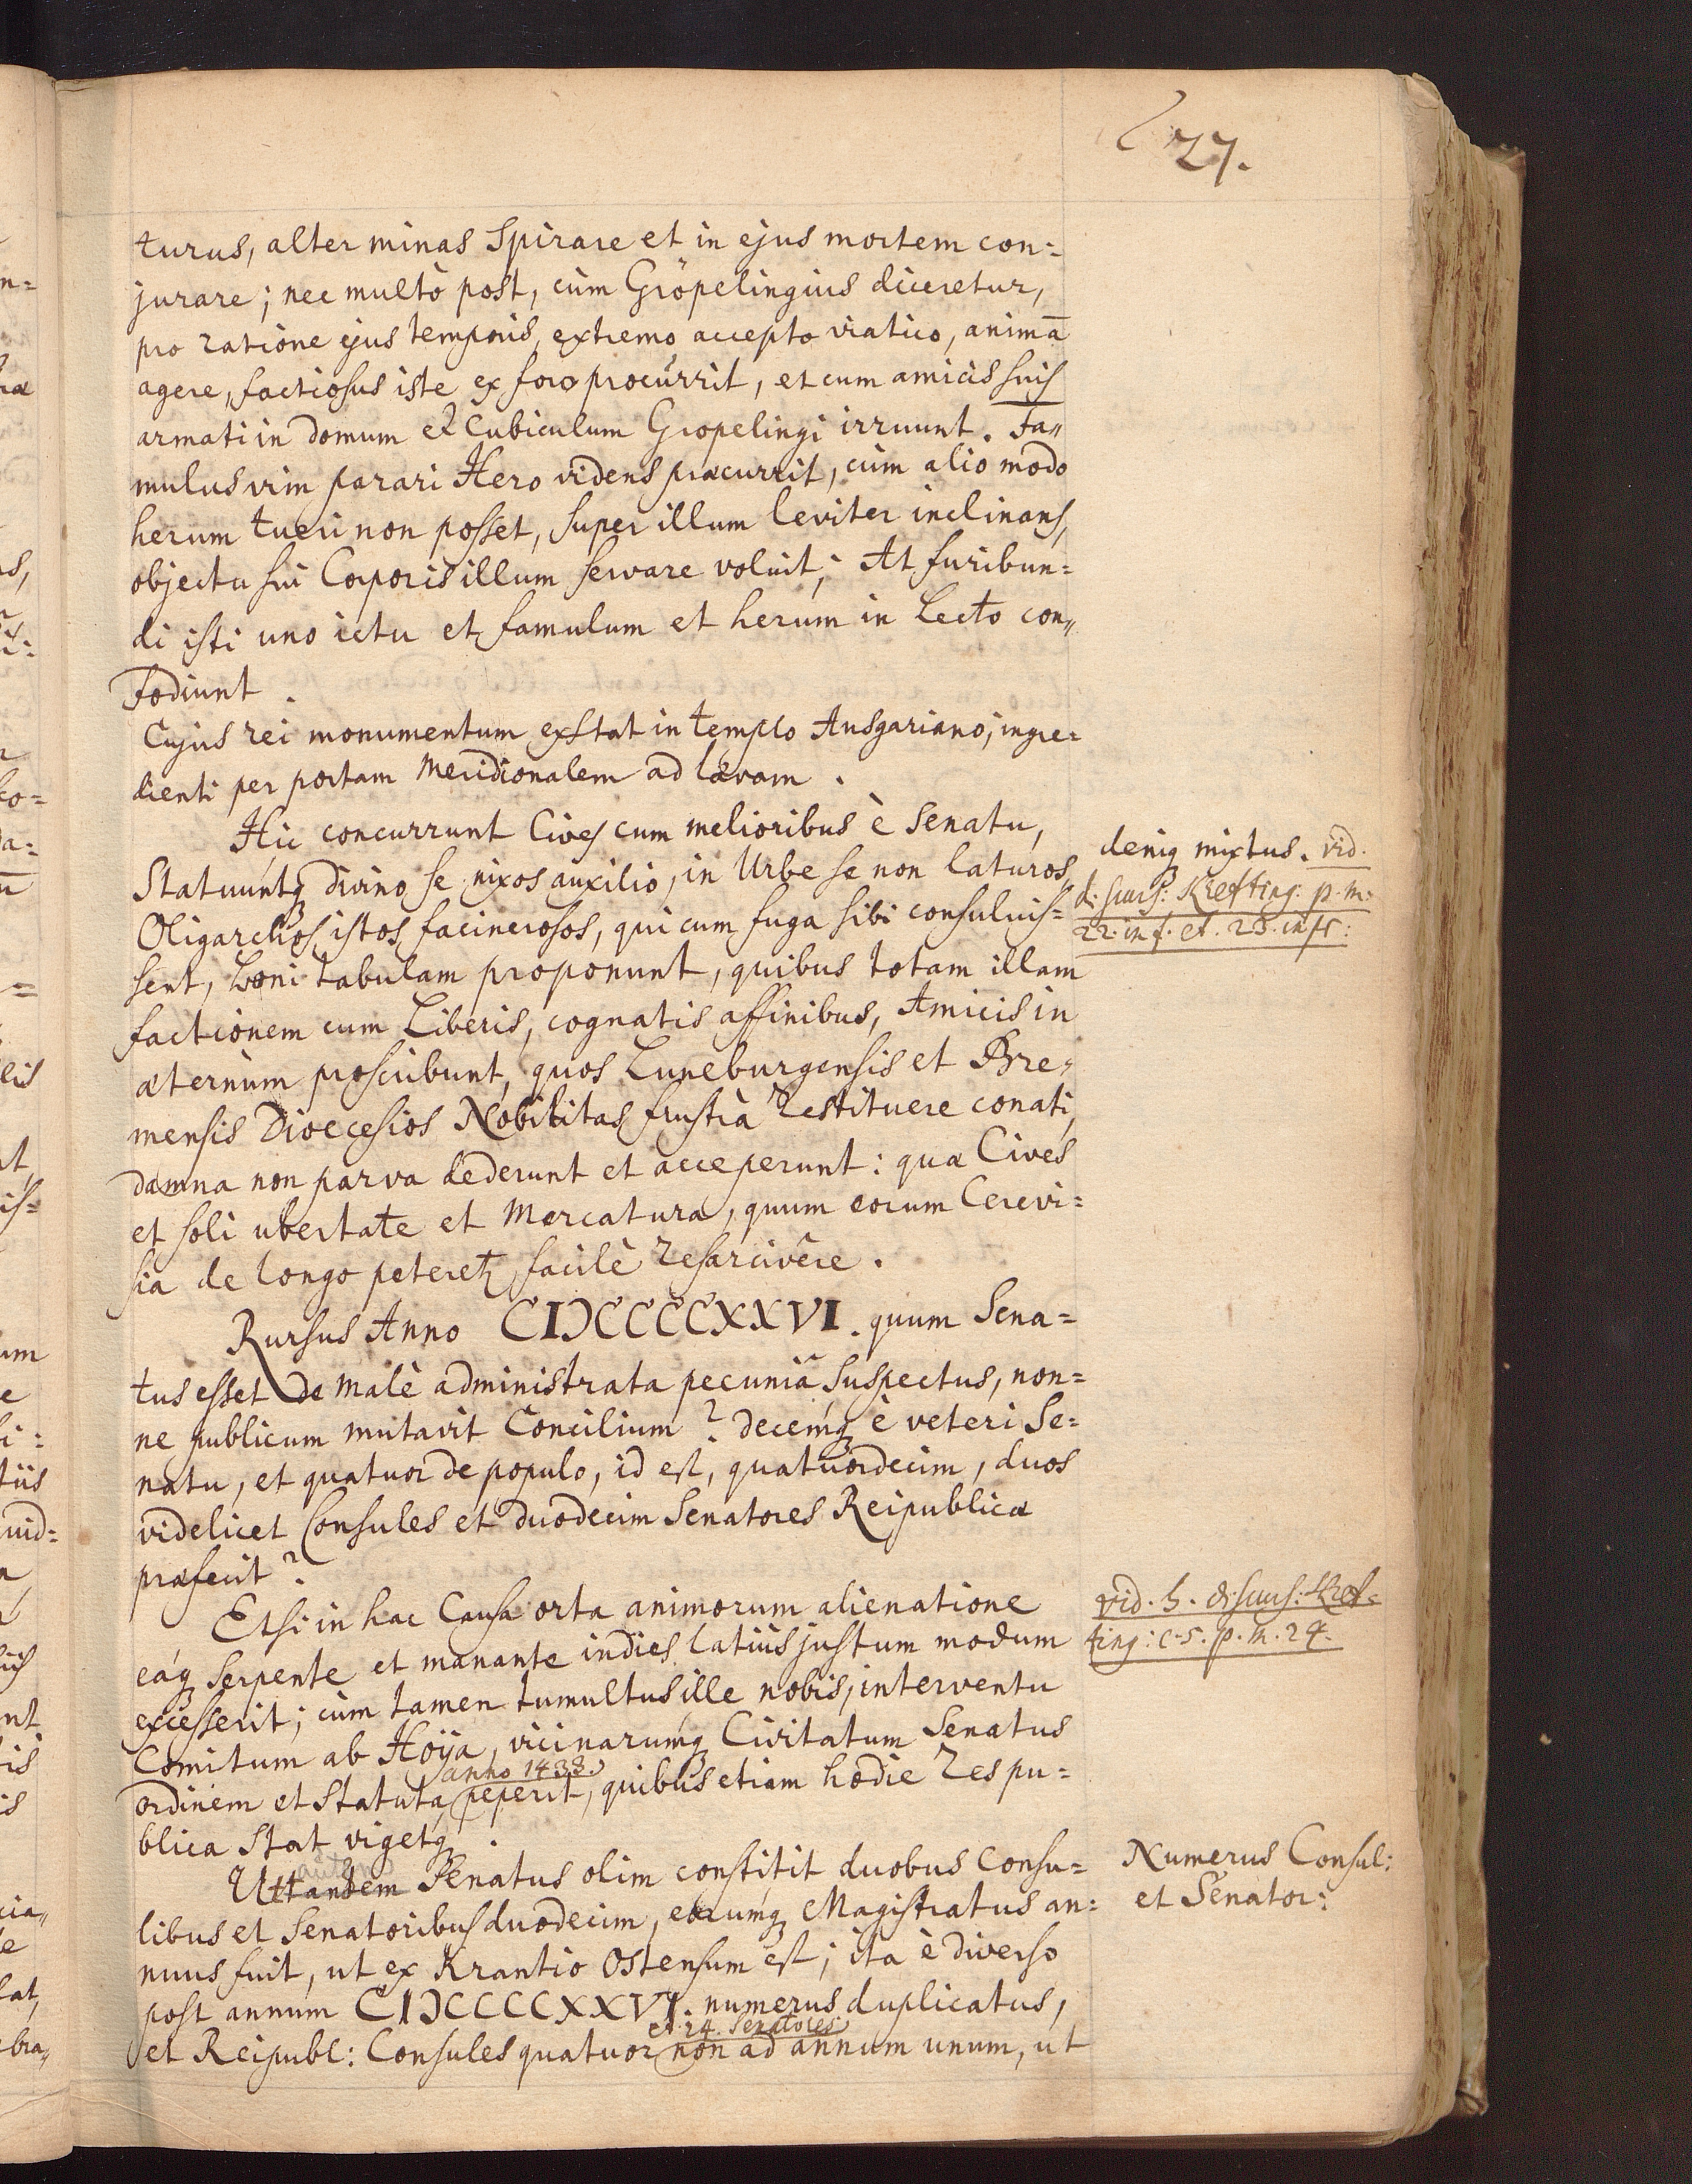 27.
turus, alter minas Spirare et in ejus mortem con=
jurare; nec multò post, cùm Gröpelingius diceretur,
pro ratione ejus temporis, extremo accepto viatico, animā
agere, factiosus iste ex foro procurrit, et cum amicis suis
armati in domum et Cubiculum Gropelingi irruunt. Fa„
mulus vim parari Hero videns præcurrit, cùm alio modo
herum tueri non posset, super illum leviter inclinans,
objectu sui Corporis illum servare voluit; At furibun=
di isti uno ictu et famulum et herum in Lecto con„
fodiunt.
Cujus rei monumentum exstat in templo Ansgariano, ingre=
dienti per portam Meridionalem ad lævam.
Hic concurrunt Cives cum melioribus è Senatu,
Statuuntq divino se nixos auxilio, in Urbe se non laturos
Oligarchos istos facinerosos, qui cum fuga sibi consuluis=
sent, boni tabulam proponunt, quibus totam illam
factionem cum Liberis, cognatis affinibus, Amicis in
æternùm proscribunt, quos Luneburgensis et Bre=
mensis Dioecesios Nobilitas frustrà restituere conati,
damna non parva dederunt et acceperunt: quæ Cives
et soli ubertate et Mercatura, quum eorum Cerevi=
sia de longo peteretz, facilè resarcivêre.
Rursus Anno CIƆCCCCXXVI. quum Sena=
tus esset de malè administrata pecuniâ Suspectus, non=
ne publicum mutavit Concilium? decemq è veteri Se=
natu, et quatuor de populo, id est, quatuordecim, duos
videlicet Consules et duodecim Senatores Reipublicæ
præfecit?
Etsi in hac Causa orta animorum alienatione
eáq serpente et manante indies latiùs justum modum
excesserit; cùm tamen tumultus ille nobis, interventu
Comitum ab Hoÿa, vicinarumq Civitatum Senatus
anno 1433.
ordinem et Statuta peperit, quibus etiam hodie Respu=
blica Stat vigetq.
autem
Ut tandem Senatus olim constitit duobus Consu=
libus et Senatoribus duodecim, eorumq Magistratus an=
nuus fuit, ut ex Krantio Ostensum est; ita è diverso
post annum CIƆCCCCXXVI. numerus duplicatus,
et 24. Senatores
et Reipubl: Consules quatuor non ad annum unum, ut
deniq mixtus. vid.
discurs: Krefting: p.m.
22. inf. et. 23. infr:
vid. h. discurs: Kref=
ting: c. 5. p. m. 24.
Numerus Consul:
et Senator: